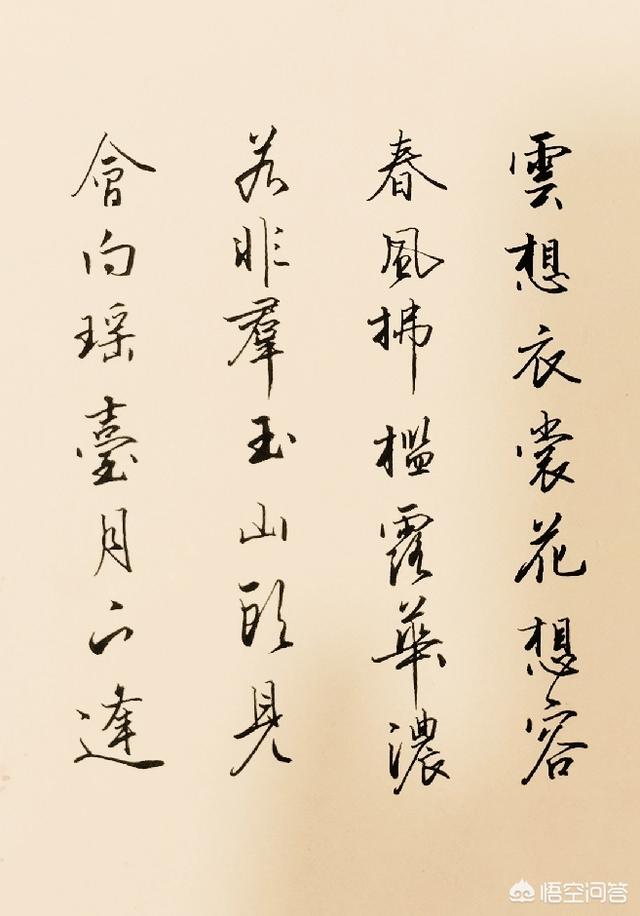 雲想衣裳花想容
春風拂檻露華濃
若非羣玉山頭見
會向瑤臺月下逢
悟空问答